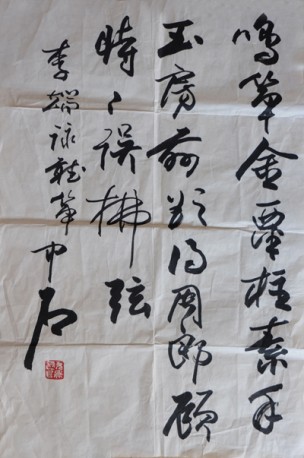 鸣筝金粟柱素手
玉房前欲得周郎顾
时时误拂弦
李端咏听筝 中石